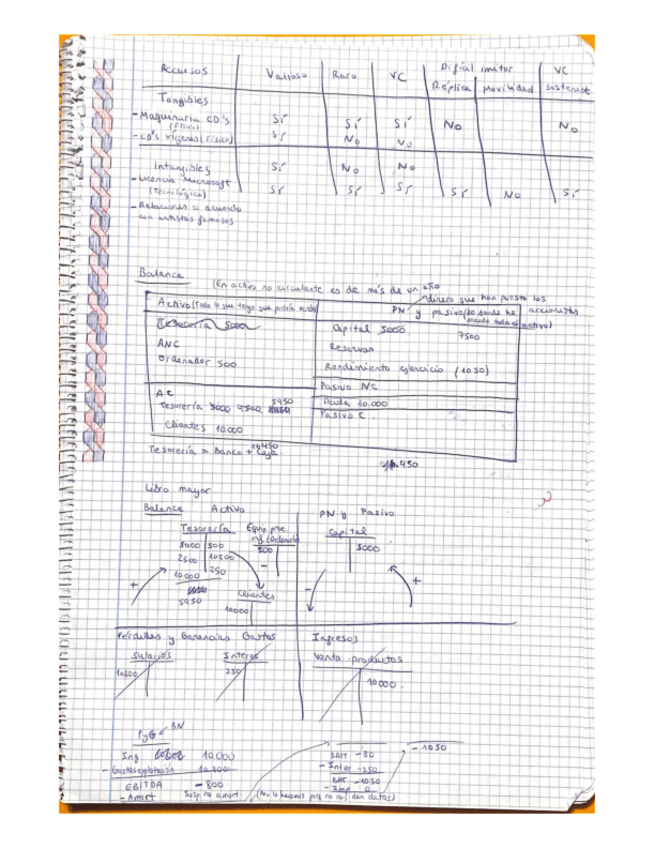 Recursos Valioso Raro VC Difícil imitar VC
Réplica Movilidad sostenible
Tangibles
- Maquinaria CD's Sí Sí Sí No No
(Físico)
- CD's vírgenes (Físico) Sí No No
Intangibles Sí No No
- Licencia Microsoft Sí Sí Sí Sí No Sí
(Tecnológico)
- Relaciones o acuerdo
con artistas famosos
Balance
(En activo no circulante es de más de un año
dinero que han puesto los
accionistas
Activo (Todo lo que tengo que podría vender) PN y pasivo (de donde he
sacado todo el activo)
Tesorería 5000 Capital 5000 7500
ANC Reservas
Ordenador 500 Rendimiento ejercicio (1050)
Pasivo NC
AC Deuda 10.000
Tesorería 5000 9500 5950 Pasivo C.
Clientes 10000
Tesorería = Banco + Caja 16.450
16.450
Libro mayor
Balance Activo PN y Pasivo
Tesorería Equip proc Capital
inf. (Ordenador)
5000 500 500 5000
2500 10800
10000 250
5950 Clientes
10000
+ - - +
Pérdidas y Ganancias Gastos Ingresos
Salarios Interes Venta productos
10800 250 10000
PyG BN
Ing 10.000 BAIT -80 -1050
- Gastos explotación 10.800 - Inter -250
EBITDA -800 BAI -1050
- Amort - Imp 0